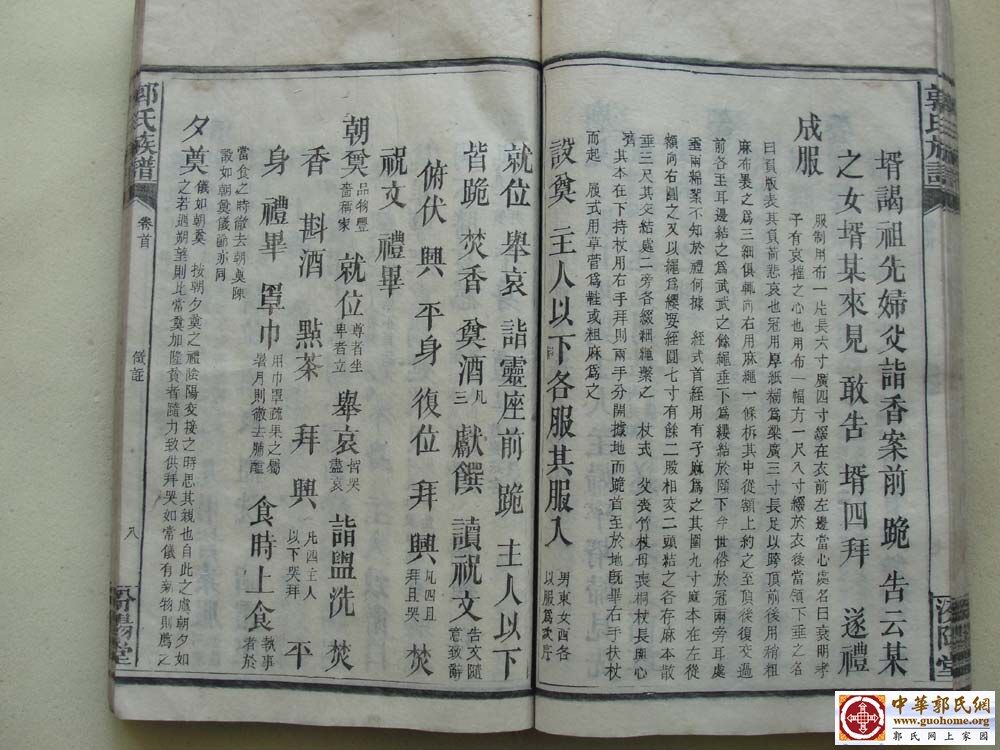 郭氏族譜
汾陽堂
壻謁祖先婦父詣香案前 跪 告云某
之女壻某來見 敢告 壻四拜 遂禮
成服
服制用布一片長六寸廣四寸綴在衣前左邊當心處名曰衰明孝
子有哀摧之心也用布一幅方一尺八寸綴於衣後當領下垂之名
曰負版表其負荷悲哀也冠用厚紙糊爲梁廣三寸長足以跨頂前後用稍粗
麻布裹之爲三細俱輒向右用麻繩一條拆其中從額上約之至頂後復交過
前各至耳邊結之爲武武之餘繩垂下爲纓結於頤下今世俗於冠兩旁耳處
垂兩綿絮不知於禮何據 絰式首絰用有子麻爲之其圍九寸麻本在左從
額向右圍之又以繩爲纓要絰圍七寸有餘二股相交二頭結之各存麻本散
垂三尺其交結處二旁各綴細繩繫之 杖式 父喪竹杖母喪桐杖長與心
齊其本在下持杖用右手拜則兩手分開據地而跪首至於地旣畢右手扶杖
而起 履式用草菅爲鞋或粗麻爲之
設奠 主人以下各服其服入 男東女西各以服爲次序
就位 舉哀 詣靈座前 跪 主人以下
皆跪 焚香 奠酒凡三 獻饌 讀祝文告文隨意致辭
俯伏 興 平身 復位 拜 興凡四且拜且哭 焚
祝文 禮畢
朝奠品物豐嗇稱家 就位尊者坐卑者立 舉哀皆哭盡哀 詣盥洗 焚
香 斟酒 點茶 拜 興凡四主人以下哭拜 平
身 禮畢 罩巾用巾罩蔬果之屬暑月則徹去脯醢 食時上食執事者於
當食之時徹去朝奠陳設如朝奠儀節亦同
夕奠儀如朝奠 按朝夕奠之禮陰陽交接之時思其親也自此之處朝夕如
之若遇朔望則比常奠加隆貧者隨力致供拜哭如常儀有新物則薦之
郭氏族譜
卷首
儀註
八
汾陽堂
中華郭氏網
www.guohome.org
郭氏網上家園